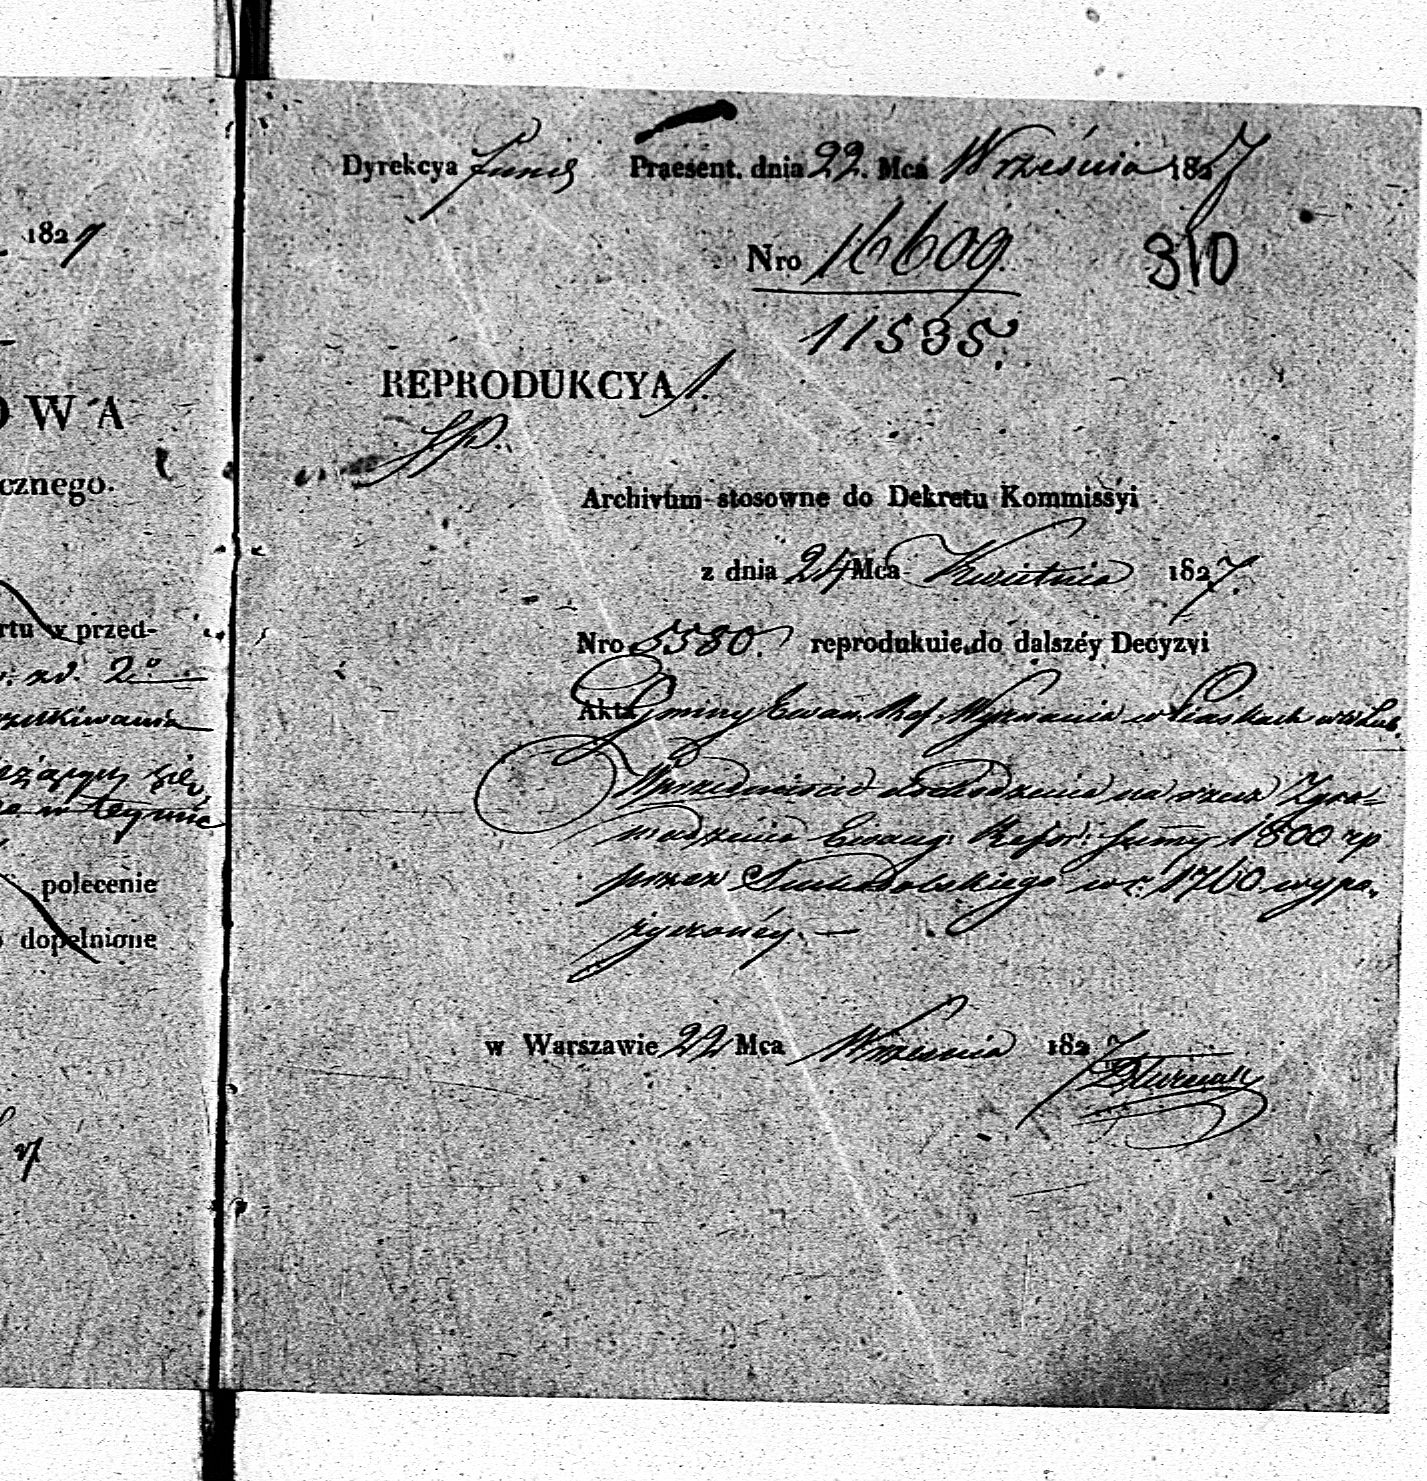 1827
OWA
cznego.
rtu w przed-
2º
szukiwania
polecenie
dopełnione
Dyrekcya Fund Praesent. dnia 22. Mca Września 1827
Nro 16609.
310
11535.
REPRODUKCYA 1.
Archivum stosowne do Dekretu Kommissyi
z dnia 24 Mca Kwietnia 1827.
Nro 5580. reprodukuie do dalszéy Decyzyi
Akta Gminy Ewan. Ref. Wyznania w Piaskach w Lub.
W przedmiocie dochodzenia na rzecz Zgro-
madzenia Ewang: Refor: Summy 1800 zp
przez Suchodolskiego w r: 1760 wypo-
życzonéy. —
w Warszawie 22 Mca Września 1827